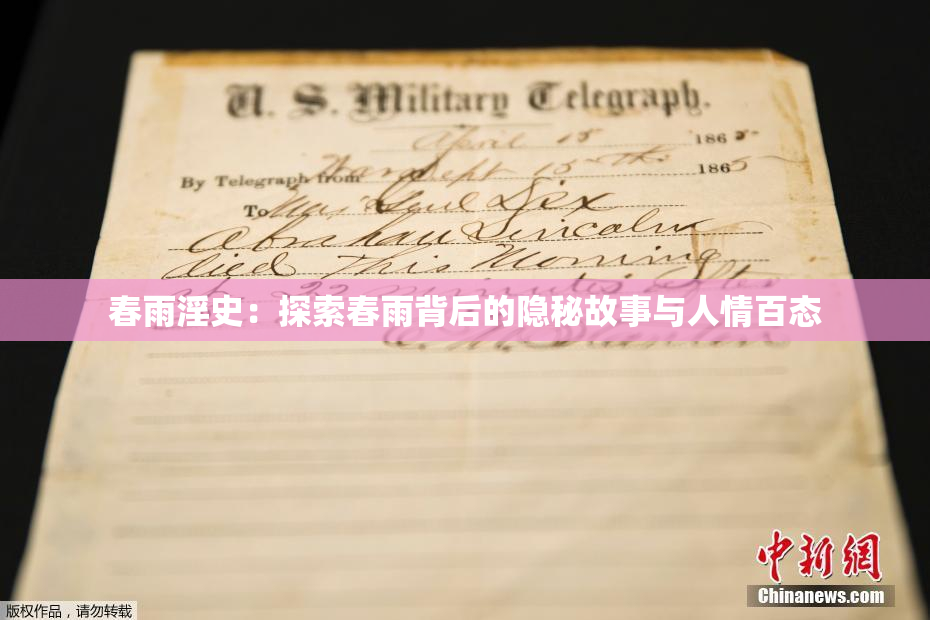 U. S. Military Telegraph.
April 15 1865
By Telegraph from War Dept 15th 1865
To Maj Genl Dix
Abraham Lincoln
died This Morning
at 22 minutes after
春雨淫史：探索春雨背后的隐秘故事与人情百态
E. M. Stanton
中新网
Chinanews.com
版权作品，请勿转载